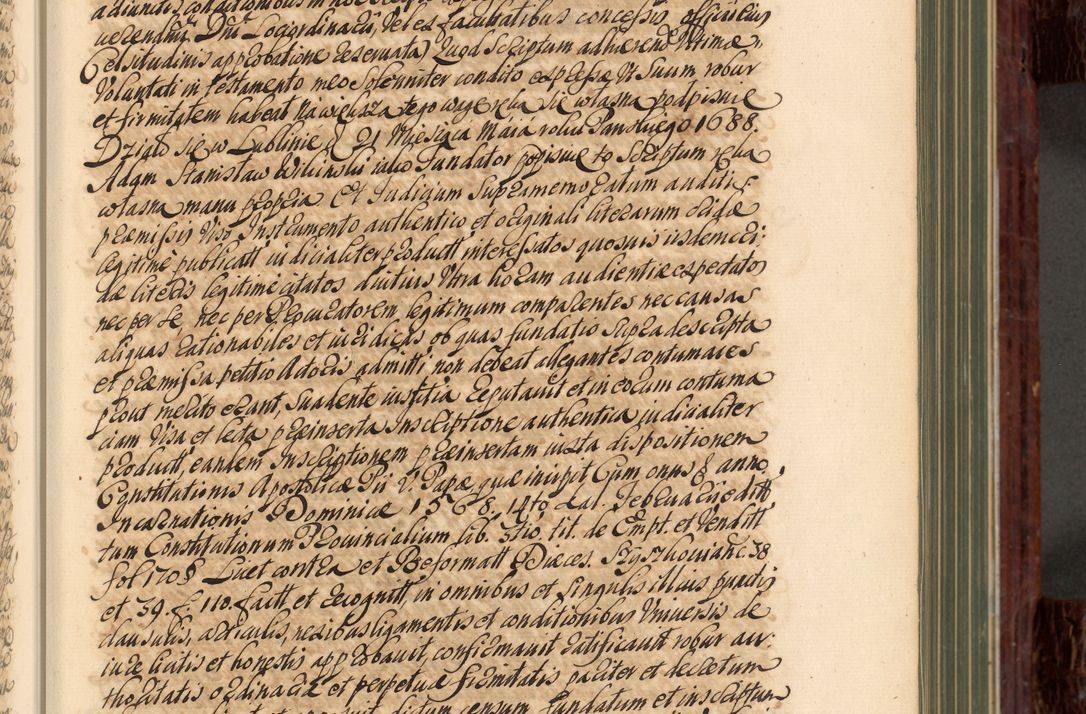 adiundis conditionibus in hoc
verendmi Dni Locordinarii, vel ex facultatibus concessis officii eius
Celsitudinis approbatione reservata) Quod scriptum adhaerend Ultimae
Voluntati in testamento meo solenniter condito expresse Ut suum robur
et firmitatem habeat na większą tego wagę ręką się własną podpisuię
Działo się w Lublinie d 21 Miesiąca Maia roku Pańskiego 1688.
Adam Stanisław iako Fundator popisuię to Scriptum ręką
własną manu propria Et Iudicium Supramemoratum auditis
praemissis viso Instrumento authentico et originali literarum
legitime publicatt iudicialiter productt interessatos quosvis iisdem ci:
literis legitime citatos diutius Ultra horam audientiae expectatos
nec per se, nec per Procuratorem legitimum comparentes nec causas
aliquas rationabiles et iuridicas ob quas fundatio supra descripta
et praemissa petitio Actoris admitti non debeat allegantes contumaces
prout merito erant, suadente iustitia reputavit et in eorum contuma
ciam visa et lecta praeinserta Inscriptione authentica iudicialiter
producti, eandem Inscriptionem praeinsertam iuxta dispositionem
Constitutionis Apostolicae Pii V. Papae quae incipit Cum onus anno
Incarnationis Dominicae 1568. 14to Cal. Februarii editt
tum Constitutionum Provincialium lib. 3tio. tit. de Empt. et Venditt
fol 170 Luet contra et Reformatt Dioeces. Szyszkovianc 38
et 39 f. 110. factt et recognitt, in omnibus et singulis illius punctis
clausulis, articulis, nexibus ligamentis et conditionibus Universis de
iure licitis et honestis approbavit, confirmavit ratificavit robur au:
thoritatis ordinariae et perpetuae firmitatis pariter et decretum
dictum censum fundatum et inscriptum